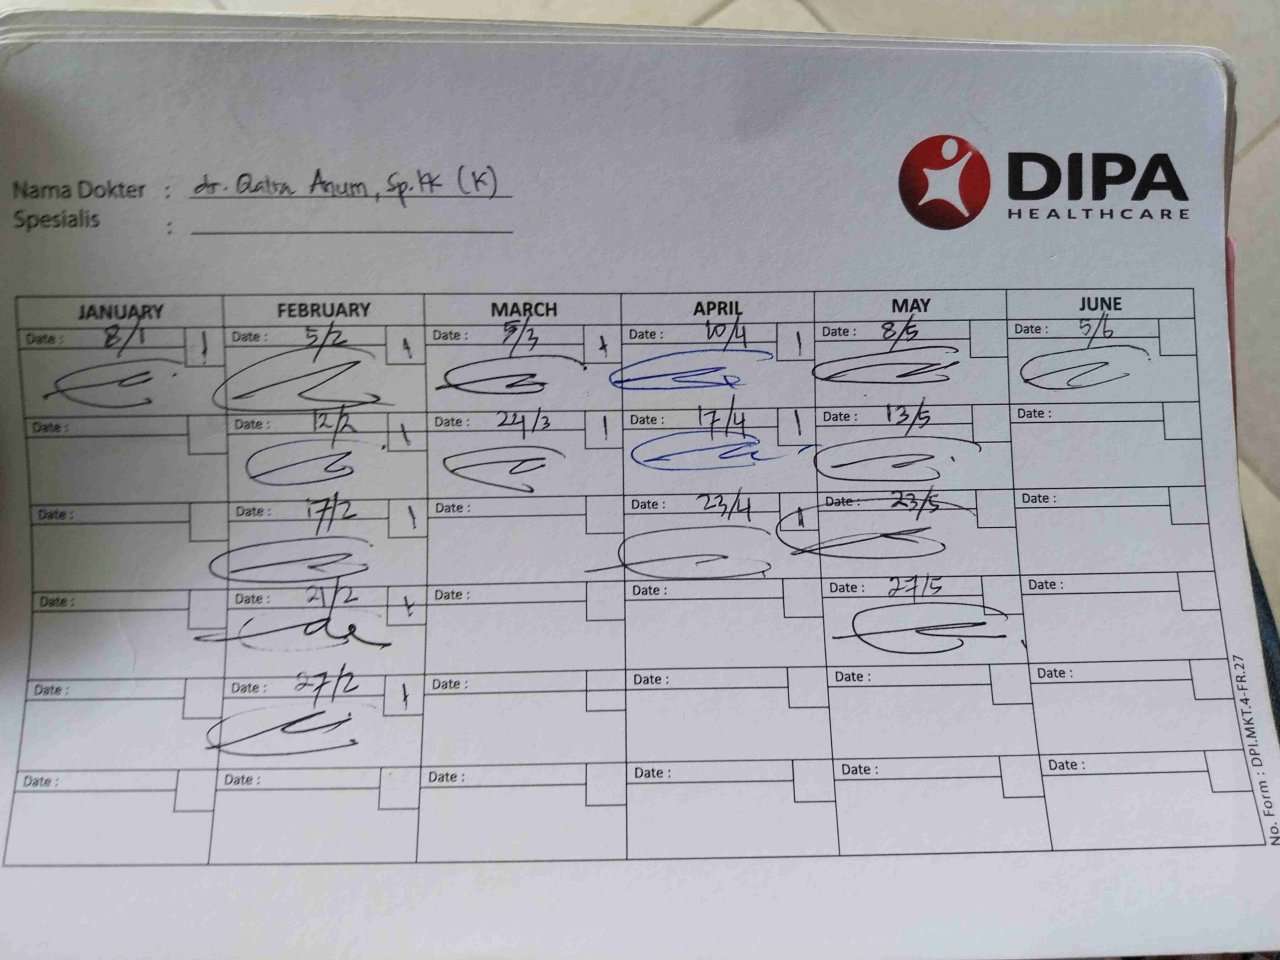 DIPA
HEALTHCARE
Nama Dokter : dr. Qaira Anum, Sp.KK (K)
Spesialis :
JANUARY FEBRUARY MARCH APRIL MAY JUNE
Date : 8/1 1 Date : 5/2 1 Date : 5/3 1 Date : 10/4 1 Date : 8/5 Date : 5/6
Date : Date : 12/2 1 Date : 24/3 1 Date : 17/4 1 Date : 13/5 Date :
Date : Date : 17/2 1 Date : Date : 23/4 1 Date : 23/5 Date :
Date : Date : 21/2 1 Date : Date : Date : 27/5 Date :
Date : Date : 27/2 1 Date : Date : Date : Date :
Date : Date : Date : Date : Date : Date :
No. Form : DPI.MKT.4-FR.27